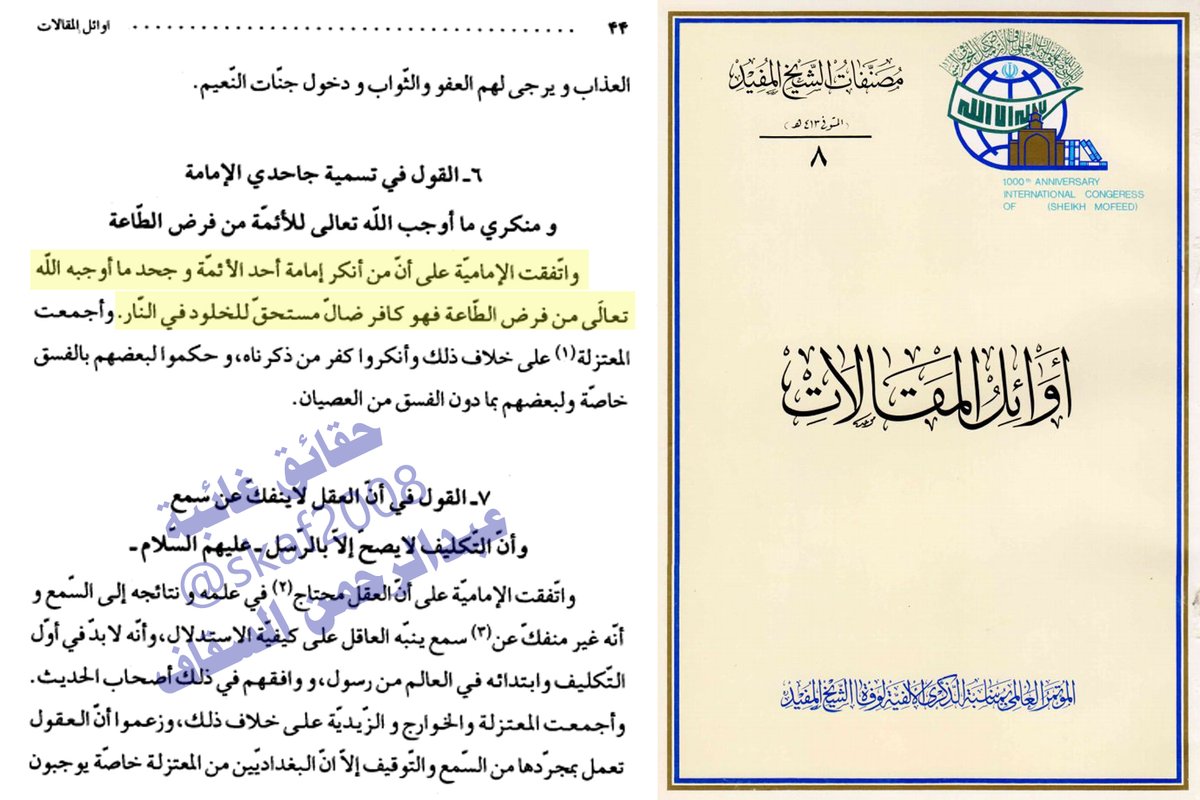 ٤٤ ........................................ اوائل المقالات
العذاب و يرجى لهم العفو والثّواب و دخول جنّات النّعيم.
٦ـ القول في تسمية جاحدي الإمامة
و منكري ما أوجب اللّه تعالى للأئمّة من فرض الطّاعة
واتّفقت الإماميّة على أنّ من أنكر إمامة أحد الأئمّة و جحد ما أوجبه اللّه
تعالَى من فرض الطّاعة فهو كافر ضالّ مستحقّ للخلود في النّار. وأجمعت
المعتزلة(١) على خلاف ذلك وأنكروا كفر من ذكرناه، و حكموا لبعضهم بالفسق
خاصّة ولبعضهم بما دون الفسق من العصيان.
٧ـ القول في أنّ العقل لاينفكّ عن سمع
وأنّ التّكليف لايصحّ إلاّ بالرّسل ـ عليهم السّلام ـ
واتّفقت الإماميّة على أنّ العقل محتاج(٢) في علمه و نتائجه إلى السّمع و
أنّه غير منفكّ عن(٣) سمع ينبّه العاقل على كيفيّة الاستدلال، وأنّه لابدّ في أوّل
التّكليف وابتدائه في العالم من رسول، و وافقهم في ذلك أصحاب الحديث.
وأجمعت المعتزلة والخوارج و الزّيديّة على خلاف ذلك، وزعموا أنّ العقول
تعمل بمجرّدها من السّمع و التّوقيف إلاّ انّ البغداديّين من المعتزلة خاصّة يوجبون
حقائق غائبة
@skaf2008
عبدالرحمن السقاف
مصنفات الشيخ المفيد
(المتوفى ٤١٣ هـ)
٨
لا إله إلا الله
1000th ANNIVERSARY
INTERNATIONAL CONGERESS
OF (SHEIKH MOFEED)
أَوَائِلُ المَقَالَاتِ
المؤتمر العالمي بمناسبة الذكرى الألفية لوفاة الشيخ المفيد